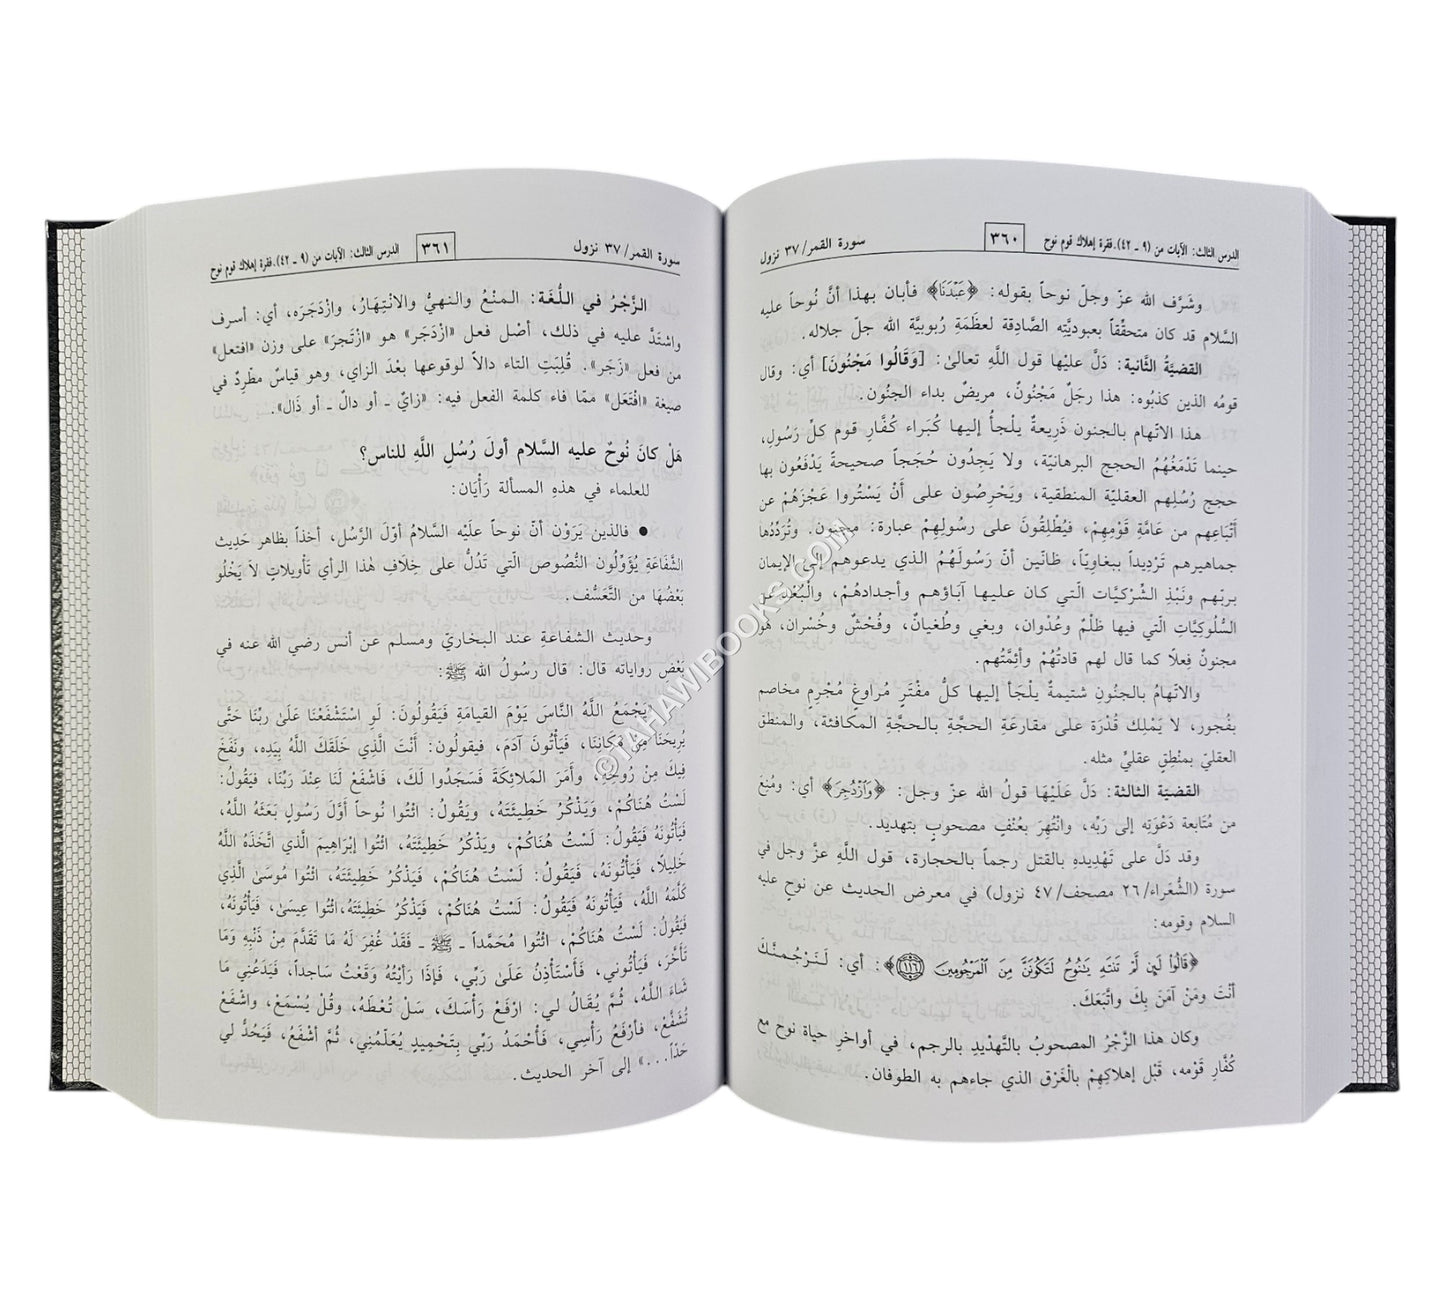 الدرس الثالث: الآيات من (٩ ـ ٤٢). فقرة إهلاك قوم نوح ٣٦٠ سورة القمر/ ٣٧ نزول
وشَرَّف الله عزّ وجلّ نوحاً بقوله: ﴿عَبْدَنَا﴾ فأبان بهذا أنَّ نُوحاً عليه
السَّلام قد كان متحقّقاً بعبوديَّتِه الصَّادِقة لعظَمَةِ رُبوبيَّة الله جلّ جلاله.
القضيَّةُ الثَّانية: دَلَّ عليْها قول اللَّهِ تعالىٰ: [وَقَالُوا مَجْنُونَ] أي: وقال
قومُه الذين كذبُوه: هذا رجَلٌ مَجْنُونٌ، مريضٌ بداء الجنُون.
هذا الاتّهام بالجنون ذَرِيعةٌ يلْجأُ إليها كُبَراء كُفَّارِ قوم كلّ رَسُولٍ،
حينما تَدْمَغُهُمُ الحجج البرهانيّة، ولا يَجِدُون حُجَجاً صحيحةً يَدْفَعُون بها
حجج رُسُلِهم العقليّة المنطقية، ويَحْرِصُون على أَنْ يَسْتُروا عَجْزَهُمْ عن
أَتْبَاعِهم من عَامَّةِ قَوْمِهِمْ، فيُطْلِقُونَ على رسُولِهِمْ عبارة: مجنون. وتُرَدِّدُها
جماهيرهم تَرْدِيداً ببغاوِيّاً، ظانّين أنّ رَسُولَهُمُ الذي يدعوهم إلى الإيمان
بربّهم ونَبْذِ الشِّرْكيَّات الّتي كان عليها آبَاؤهم وأجدادهمْ، والْبُعْدِ عن
السُّلوكِيَّاتِ الّتي فيها ظُلْمٌ وعُدْوان، وبغي وطُغيانٌ، وفُحْشٌ وخُسْران، هُوَ
مجنونٌ فِعلاً كما قال لهم قادتُهُمْ وأئِمَّتُهم.
والاتهامُ بالجنُونِ شتيمةٌ يلْجَأ إليها كلُّ مفْتَرٍ مُراوغٍ مُجْرِمٍ مخاصم
بفُجور، لا يَمْلِك قُدْرَة على مقارعَةِ الحجَّةِ بالحجَّةِ المكافئة، والمنطق
العقليّ بمنْطِقٍ عقليٍّ مثله.
القضيّة الثالثة: دَلَّ عَلَيْها قولُ الله عزّ وجل: ﴿وَٱزْدُجِرَ﴾ أي: ومُنِعَ
من مُتَابعة دَعْوَتِه إلى رَبِّه، وانْتُهِرَ بعُنْفٍ مصحوبٍ بتهديد.
وقد دَلَّ على تَهْدِيدهِ بالقتل رجماً بالحجارة، قول اللَّهِ عزَّ وجل في
سورة (الشُّعَراء/ ٢٦ مصحف/ ٤٧ نزول) في معرض الحديث عن نوحٍ عليه
السلام وقومه:
﴿قَالُوا۟ لَئِن لَّمْ تَنتَهِ يَٰنُوحُ لَتَكُونَنَّ مِنَ ٱلْمَرْجُومِينَ ١١٦﴾: أي: لَنَرْجُمَنَّكَ
أنْتَ ومَنْ آمَنَ بِكَ واتَّبَعَكَ.
وكان هذا الزَّجْرُ المصحوبُ بالتَّهْدْيدِ بالرجم، في أواخرِ حياة نوح مع
كُفَّارِ قوْمه، قَبْل إهلاكِهِمْ بالْغَرْق الذي جاءهم به الطوفان.
سورة القمر/ ٣٧ نزول ٣٦١ الدرس الثالث: الآيات من (٩ ـ ٤٢). فقرة إهلاك قوم نوح
الزَّجْرُ في اللُّغَة: المنْعُ والنهيُّ والانْتِهَارُ، وازْدَجَرَه، أي: أسرف
واشتَدَّ عليه في ذلك، أصْل فعل «ازْدَجَر» هو «ازْتَجرَ» على وزن «افتعل»
من فعل «زَجَر». قُلِبَتِ التاء دالاً لوقوعها بعْدَ الزاي، وهو قياسٌ مطّرِدٌ في
صيغة «افْتَعَل» ممّا فاء كلمة الفعل فيه: «زايٌ ـ أو دالٌ ـ أو ذَال».
هَلْ كانَ نُوحٌ عليه السَّلام أولَ رُسُلِ اللَّهِ للناس؟
للعلماء في هذهِ المسألة رَأْيَان:
● فالذين يَرَوْن أنّ نوحاً علَيْه السَّلامُ أوّلَ الرَّسُل، أخذاً بظاهر حَدِيث
الشَّفَاعَةِ يُؤَوِّلُون النُّصُوصَ الّتي تَدُلُّ على خِلَافِ هٰذا الرأي تَأْويلاتٍ لَا يَخْلُو
بَعْضُهَا من التَّعَسُّف.
وحديث الشفاعةِ عند البخاريّ ومسلم عن أنس رضي الله عنه في
بَعْض رواياته قال: قال رسُولُ الله ﷺ:
«يَجْمَعُ اللَّهُ النَّاسَ يَوْم القيامَةِ فَيَقُولُونَ: لَوِ اسْتَشْفَعْنَا عَلَىٰ رَبِّنا حَتَّى
يُرِيحَنَا مِنْ مَكَانِنَا، فَيَأْتُونَ آدَمَ، فيقولُون: أنْتَ الَّذِي خَلَقَكَ اللَّهُ بِيَدِه، ونَفَخَ
فِيكَ مِنْ رُوحِهِ، وأَمَرَ المَلائِكَةَ فَسَجَدُوا لَكَ، فَاشْفَعْ لَنَا عِنْدَ رَبِّنَا، فَيَقُولُ:
لَسْتُ هُنَاكُمْ، وَيَذْكُرُ خَطِيئَتَهُ، ويَقُولُ: ائْتُوا نُوحاً أَوَّلَ رَسُولٍ بَعَثَهُ اللَّهُ،
فَيَأْتُونَهُ فَيَقُولُ: لَسْتُ هُنَاكُمْ، ويَذْكُرُ خَطِيئَتَهُ، ائتُوا إبْرَاهِيمَ الَّذي اتَّخَذَهُ اللَّهُ
خَلِيلًا، فَيَأْتُونَهُ، فَيَقُولُ: لَسْتُ هُنَاكُمْ، فَيَذْكُرُ خَطِيئَتَهُ، ائْتُوا مُوسَىٰ الَّذِي
كَلَّمَهُ اللَّهُ، فَيَأْتُونَهُ فَيَقُولُ: لَسْتُ هُنَاكُمْ، فَيَذْكُرُ خَطِيئَتَهُ، ائْتُوا عِيسَىٰ، فَيَأْتُونَهُ،
فَيَقُولُ: لَسْتُ هُنَاكُمْ، ائْتُوا مُحَمَّداً ـ ﷺ ـ فَقَدْ غُفِرَ لَهُ مَا تَقَدَّمَ مِنْ ذَنْبِهِ وَمَا
تَأَخَّرَ، فَيَأْتُوني، فَأَسْتَأْذِنُ عَلَىٰ رَبِّي، فَإِذَا رَأَيْتُهُ وَقَعْتُ سَاجداً، فَيَدَعُنِي مَا
شَاءَ اللَّهُ، ثُمَّ يُقَالُ لي: ارْفَعْ رَأْسَكَ، سَلْ تُعْطَهُ، وقُلْ يُسْمَعْ، واشْفَعْ
تُشَفَّعْ، فأَرْفَعُ رَأْسِي، فَأَحْمَدُ رَبِّي بِتَحْمِيدٍ يُعَلِّمُنِي، ثُمَّ أشْفَعُ، فَيَحُدُّ لي
حَدّاً...» إلى آخر الحديث.
©TAHAWIBOOKS.COM